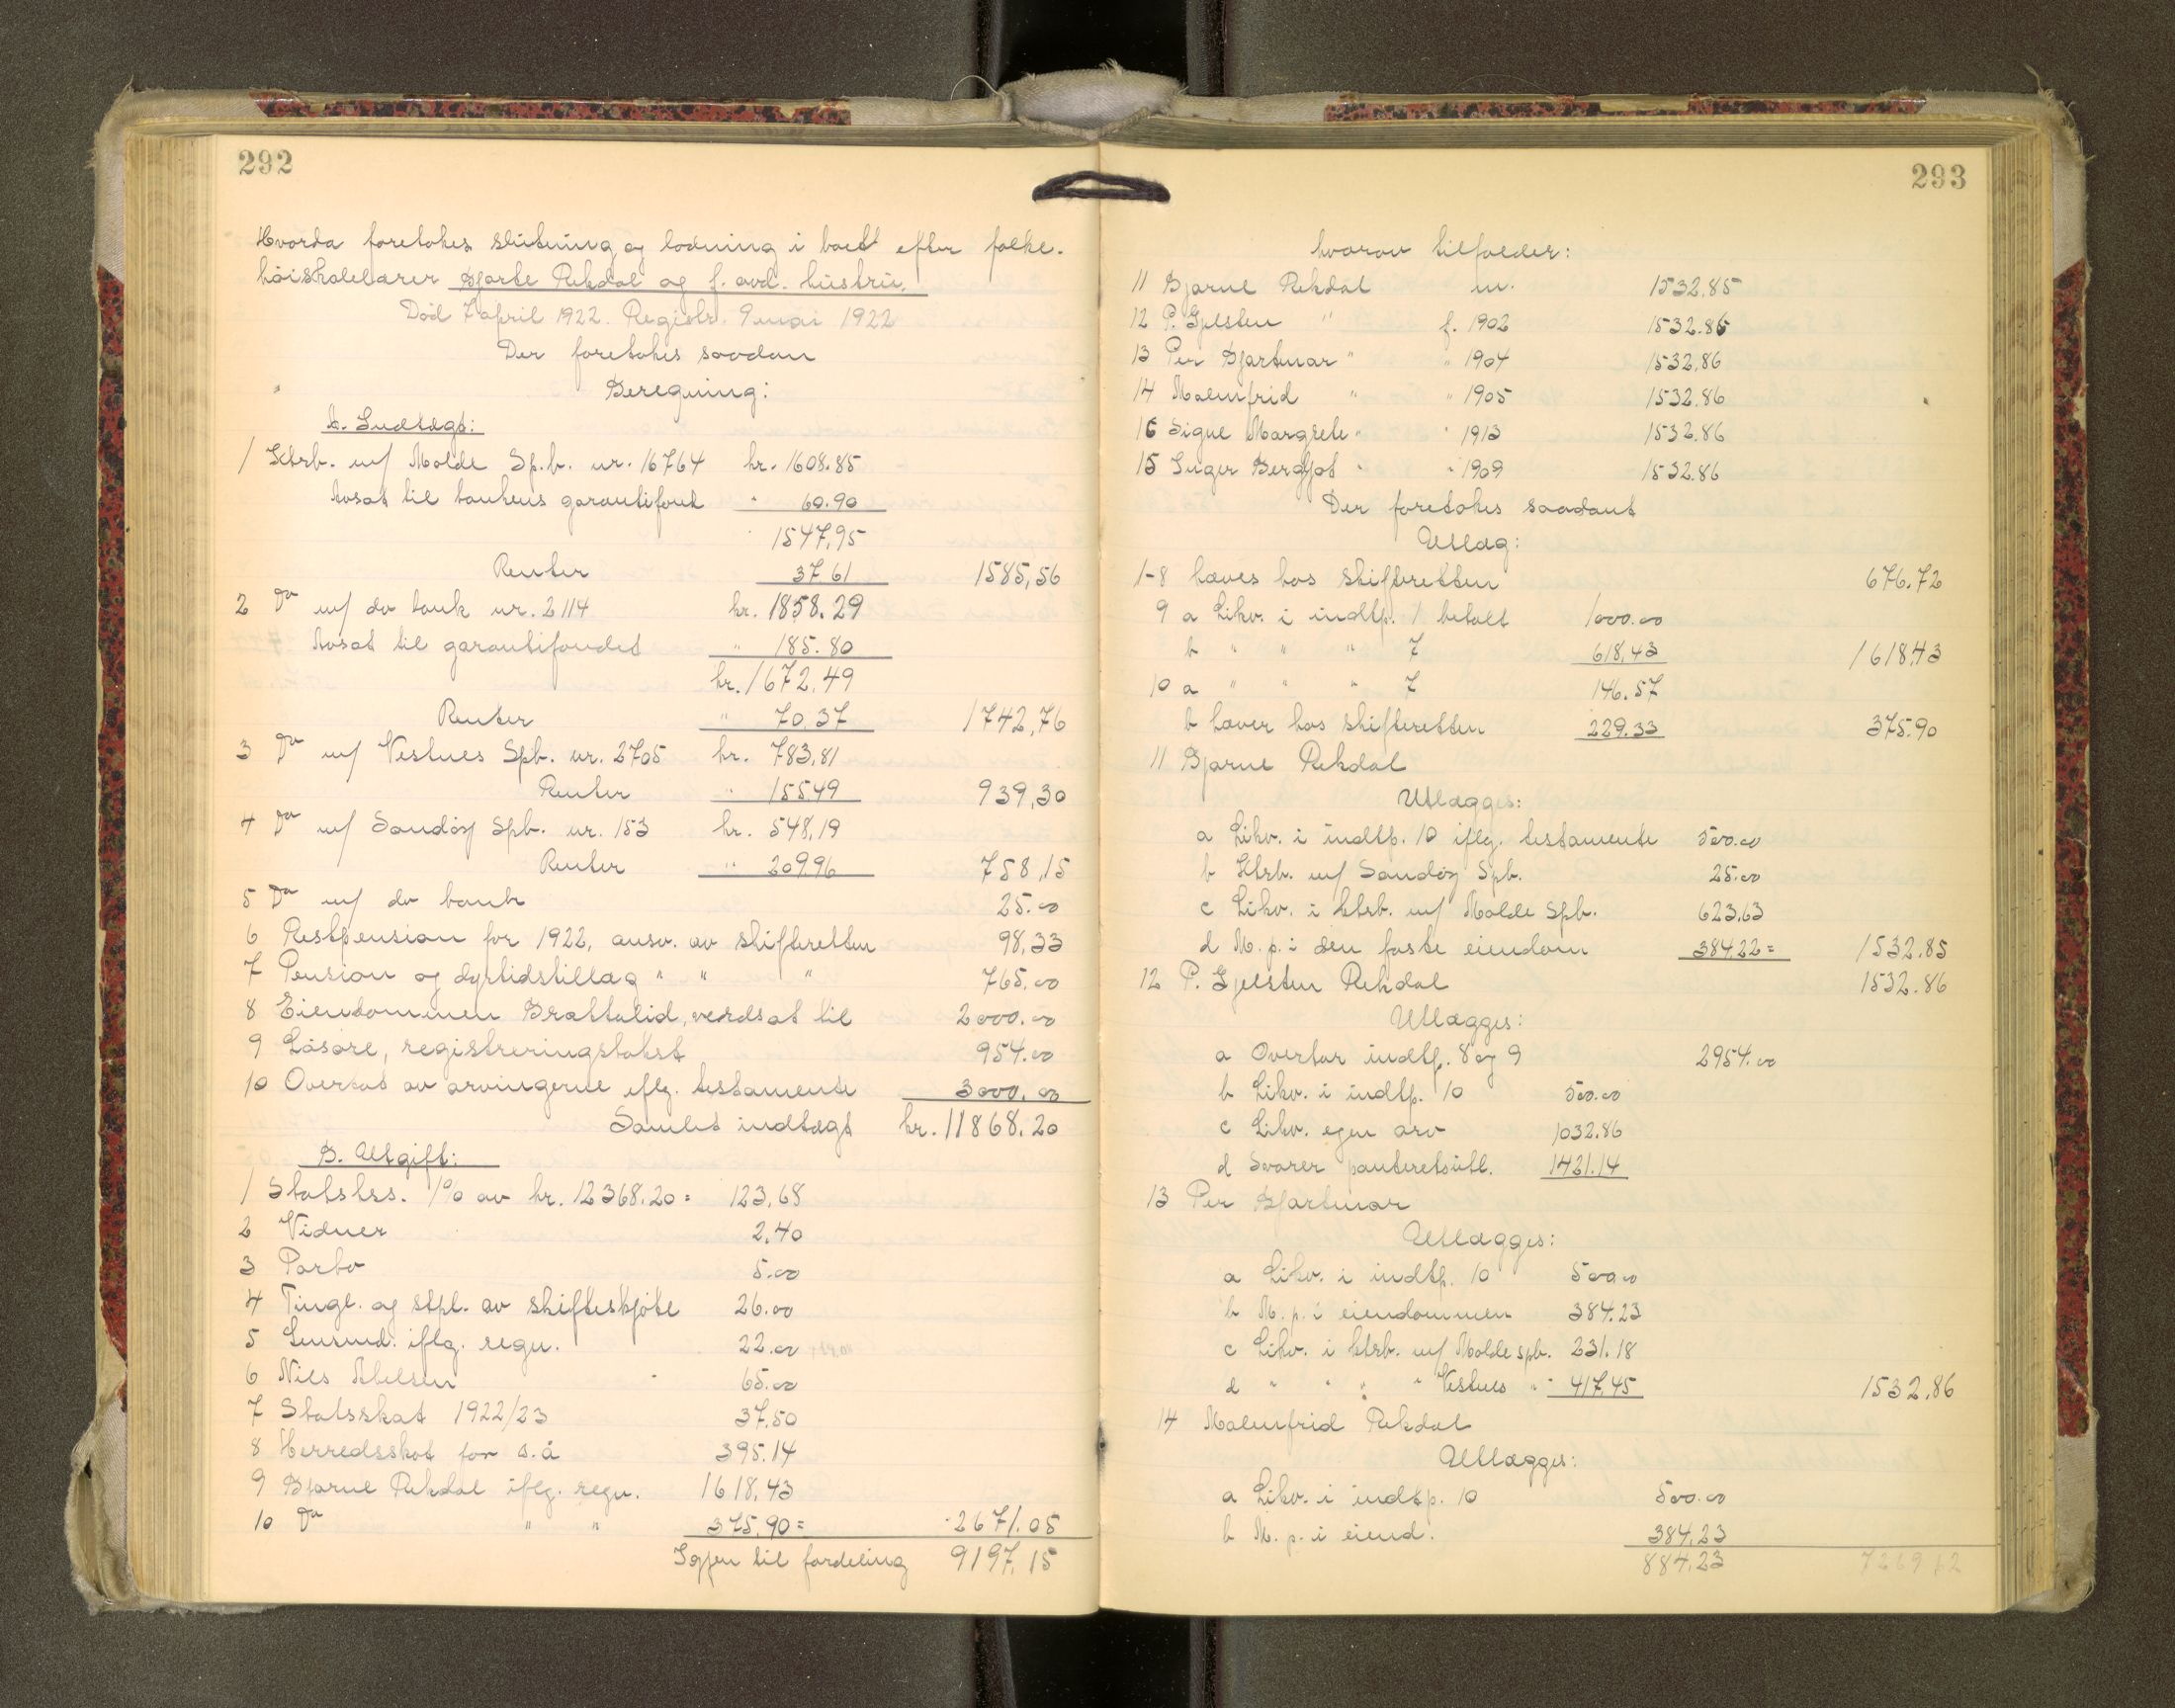 292
Hvorda foretokes slutning og lodning i boet efter folke-
høiskolelærer Hjarte Rekdal og f. avd. hustru.
Død 7 april 1922. Registr. 9 mai 1922
Der foretokes saadan
Beregning:
A. Indtægt:
1 Ktrb. m/ Molde Sp.b. nr. 16764 kr. 1608.85
Avsat til bankens garantifont " 60.90
1547,95
Renter 37.61 1585,56
2 Do m/ do bank nr. 2114 kr. 1858.29
Avsat til garantifondet " 185.80
kr. 1672,49
Renter " 70.37 1742,76
3 Do m/ Vestnes Spb. nr. 2705 kr. 783,81
Renter " 155.49 939,30
4 Do m/ Sandøy Spb. nr. 153 kr. 548,19
Renter " 209.96 758,15
5 Do m/ do bank 25.00
6 Restpension for 1922, ansv. av skifteretten 98,33
7 Pension og dyrtidstillæg " " " 765.00
8 Eiendommen Brattalid, verdsat til 2000.00
9 Løsøre, registreringstakst 954.00
10 Overtat av arvingerne eflg. testamente 3000.00
Samlet indtægt kr. 11868.20
B. Utgift:
1 Statskss. 1% av kr. 12368.20 = 123,68
2 Vidner 2,40
3 Porto 5.00
4 Tingl. og stpl. av skifteskjøte 26.00
5 Lensmd. iflg. regn. 22.00
6 Nils Abelsen 65.00
7 Statsskat 1922/23 37,50
8 Herredsskat for s.å 395.14
9 Bjarne Rekdal iflg. regn. 1618,43
10 Do " " 375,90 = 2671.05
Igjen til fordeling 9197,15
293
hvorav tilfalder:
11 Bjarne Rekdal m. 1532.85
12 P. Gjelsten " f. 1902 1532.86
13 Per Hjartmar " " 1904 1532,86
14 Malmfrid " " 1905 1532.86
16 Signe Margrete " " 1913 1532.86
15 Inger Bergljot " " 1909 1532.86
Der foretokes saadant
Utlæg:
1-8 hæves hos skifteretten 676.72
9 a Likv. i indtp. 1 betalt 1000.00
b " " " 7 618,43 1618,43
10 a " " " 7 146.57
b hæver hos skifteretten 229.33 375.90
11 Bjarne Rekdal
Utlægges:
a Likv. i indtp. 10 iflg. testamente 500.00
b Ktrb. m/ Sandøy Spb. 25.00
c Likv. i ktrb. m/ Molde Spb. 623,63
d M. p. i den faste eiendom 384.22 = 1532.85
12 P. Gjelsten Rekdal 1532.86
Utlægges:
a Overtar indtp. 8 og 9 2954.00
b Likv. i indtp. 10 500.00
c Likv. egen arv 1032.86
d Svarer panteretsutl. 1421.14
13 Per Hjartmar
Utlægges:
a Likv. i indtp. 10 500.00
b M. p. i eiendommen 384.23
c Likv. i ktrb. m/ Molde spb. 231.18
d " " " " Vestnes " " 417,45 1532,86
14 Malmfrid Rekdal
Utlægges:
a Likv. i indtp. 10 500.00
b M. p. i eiend. 384,23
884,23 7269 62